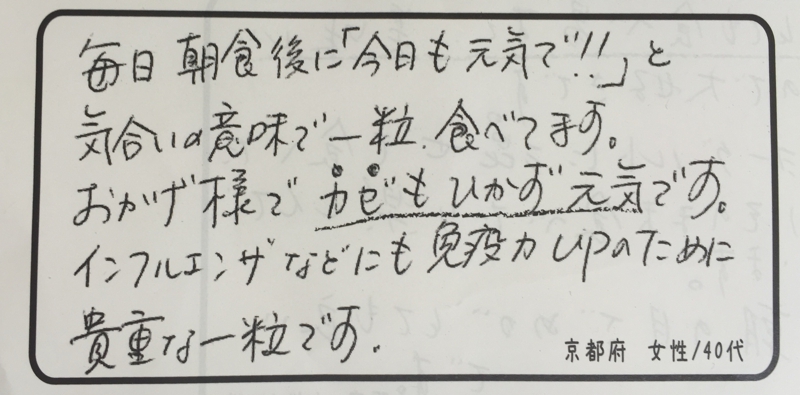 毎日 朝食後に「今日も元気で!!」と
気合いの意味で一粒、食べてます。
おかげ様で カゼもひかず元気です。
インフルエンザなどにも免疫力UPのために
貴重な一粒です。
京都府 女性/40代